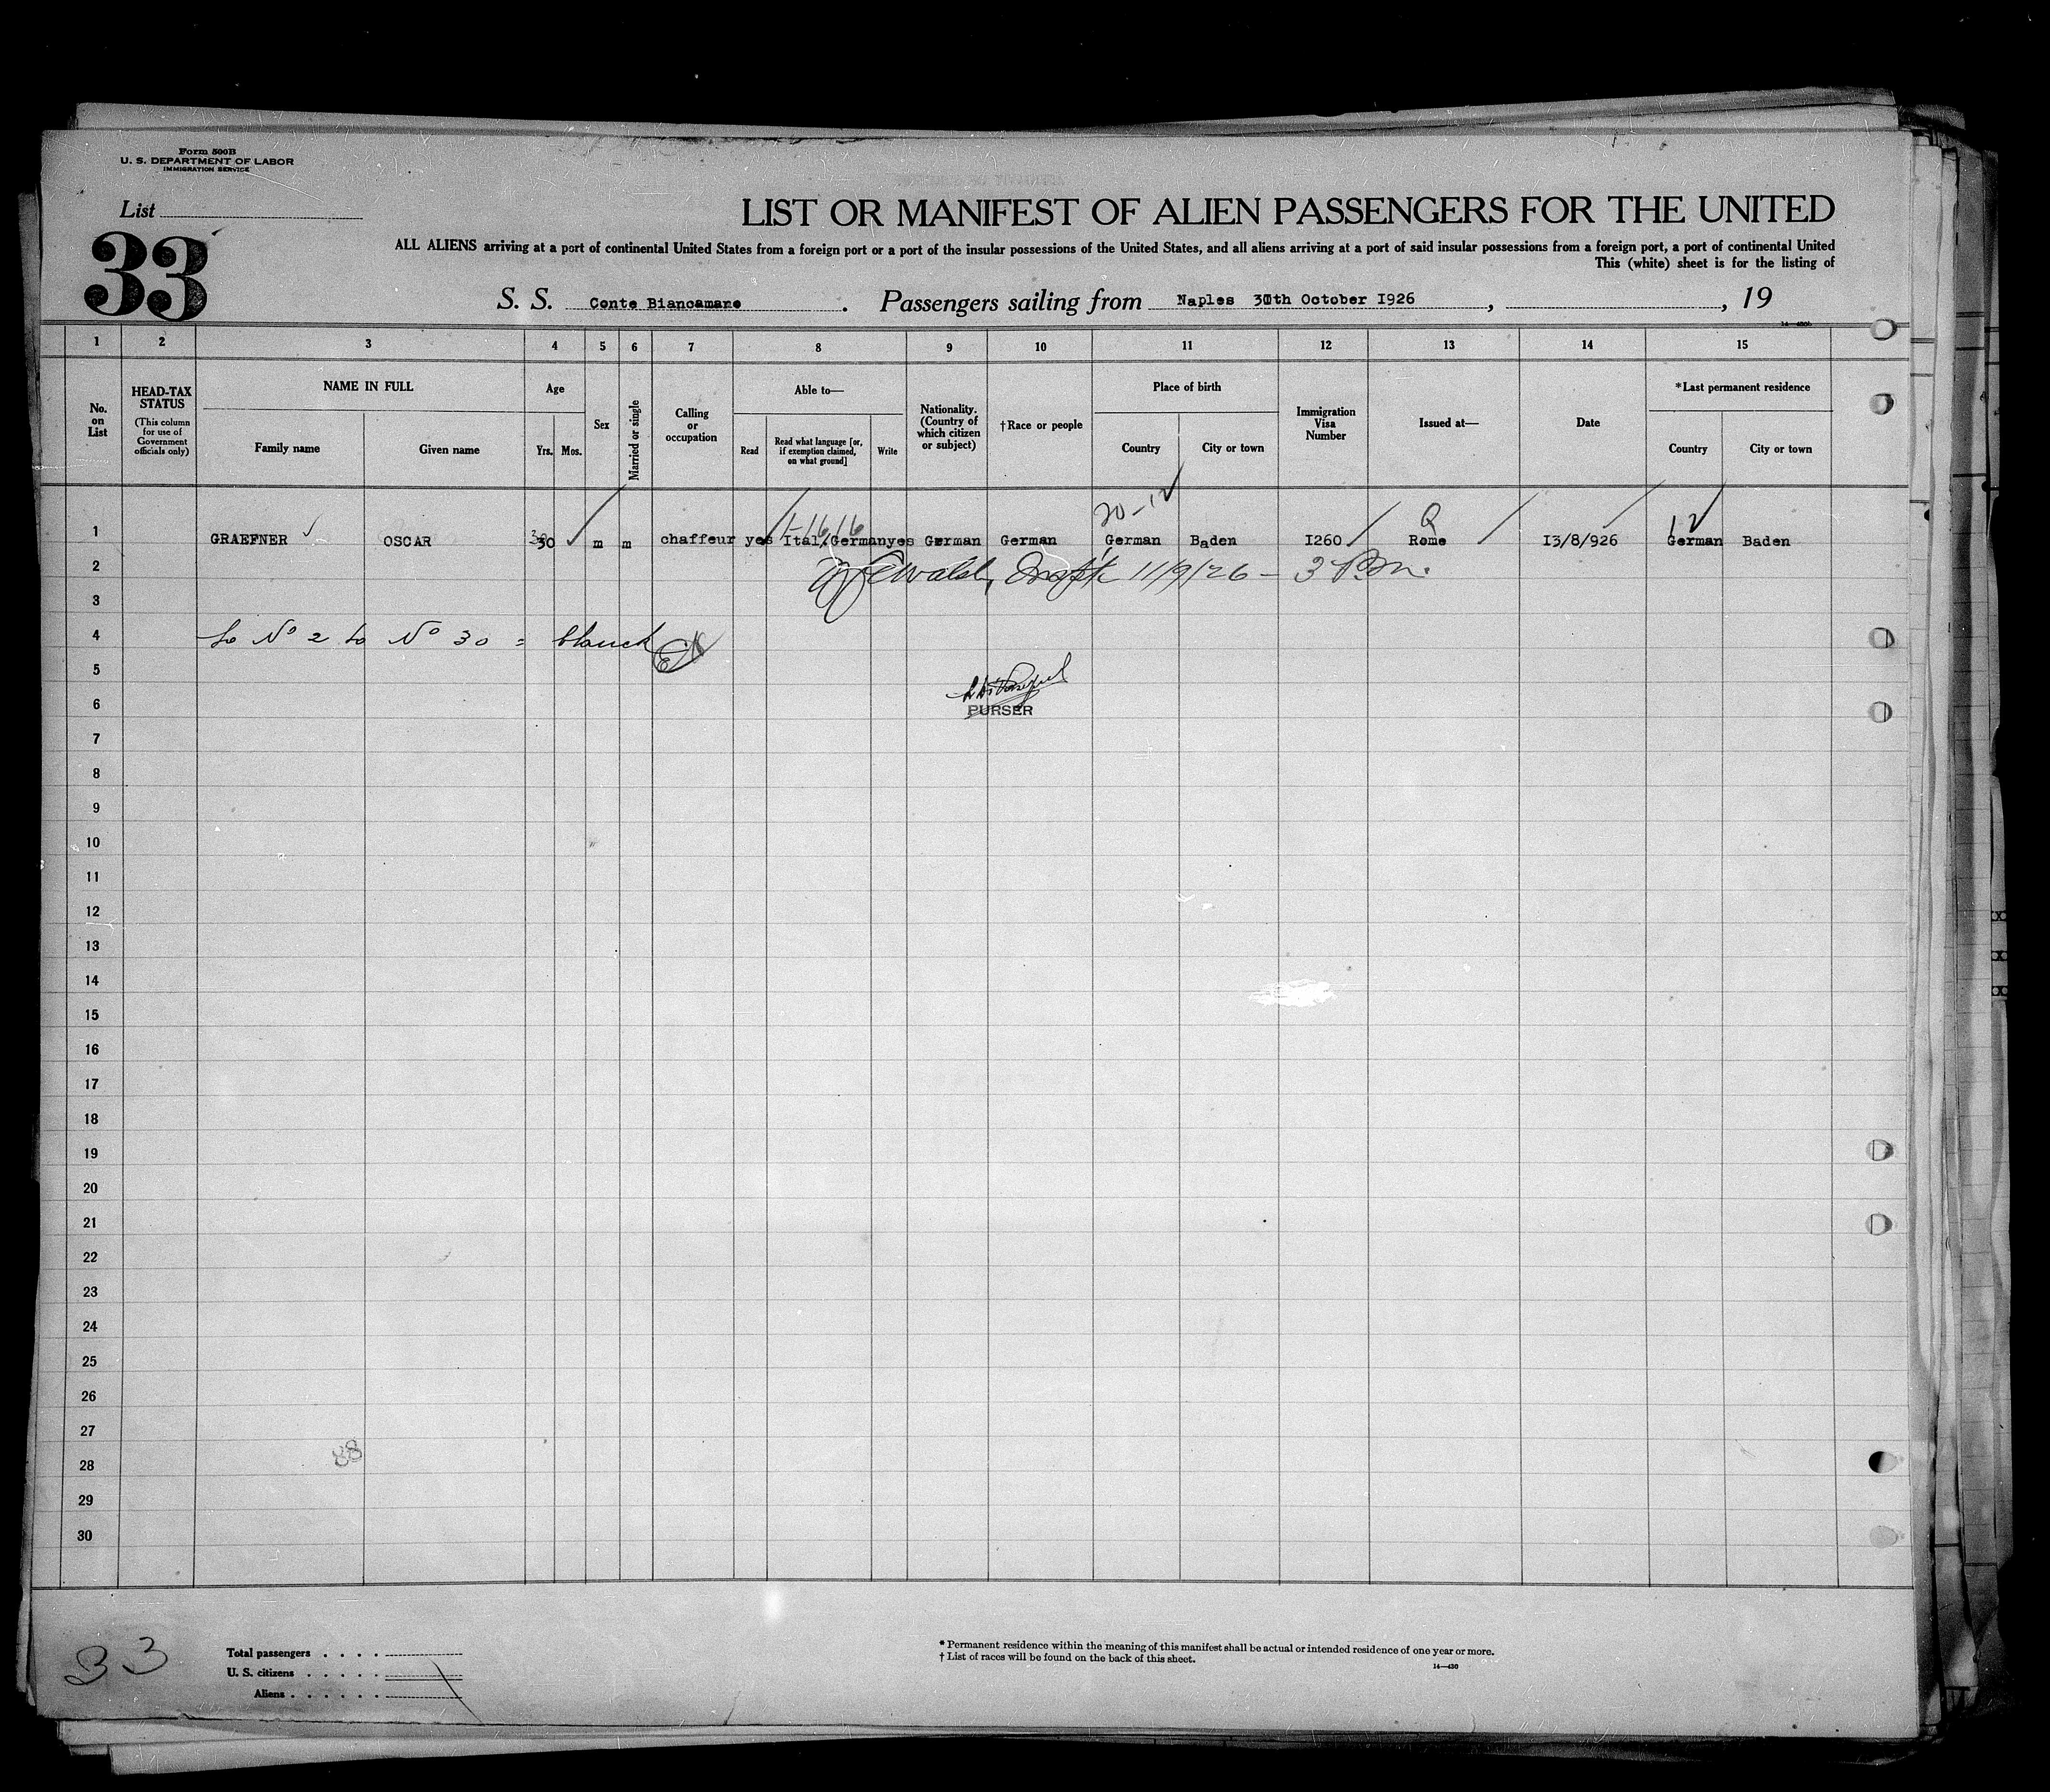 Form 500B
U. S. DEPARTMENT OF LABOR
IMMIGRATION SERVICE
List
33
LIST OR MANIFEST OF ALIEN PASSENGERS FOR THE UNITED
ALL ALIENS arriving at a port of continental United States from a foreign port or a port of the insular possessions of the United States, and all aliens arriving at a port of said insular possessions from a foreign port, a port of continental United
This (white) sheet is for the listing of
S. S. Conte Biancamano. Passengers sailing from Naples 30th October I926, , 19
1 2 3 4 5 6 7 8 9 10 11 12 13 14 15
No. on List
HEAD-TAX STATUS (This column for use of Government officials only)
NAME IN FULL
Family name
Given name
Age
Yrs.
Mos.
Sex
Married or single
Calling or occupation
Able to—
Read
Read what language [or, if exemption claimed, on what ground]
Write
Nationality. (Country of which citizen or subject)
†Race or people
Place of birth
Country
City or town
Immigration Visa Number
Issued at—
Date
*Last permanent residence
Country
City or town
20-12
Q
12
1 GRAEFNER OSCAR 30 m m chaffeur yes Ital/German yes German German German Baden I260 Rome I3/8/926 German Baden
2 11/9/26 - 3 P.m.
3
4 to No 2 to No 30 = blanck
5
6 PURSER
7
8
9
10
11
12
13
14
15
16
17
18
19
20
21
22
23
24
25
26
27
88
28
29
30
33
Total passengers . . . .
U. S. citizens . . . . .
Aliens . . . . . .
* Permanent residence within the meaning of this manifest shall be actual or intended residence of one year or more.
† List of races will be found on the back of this sheet.
14—430